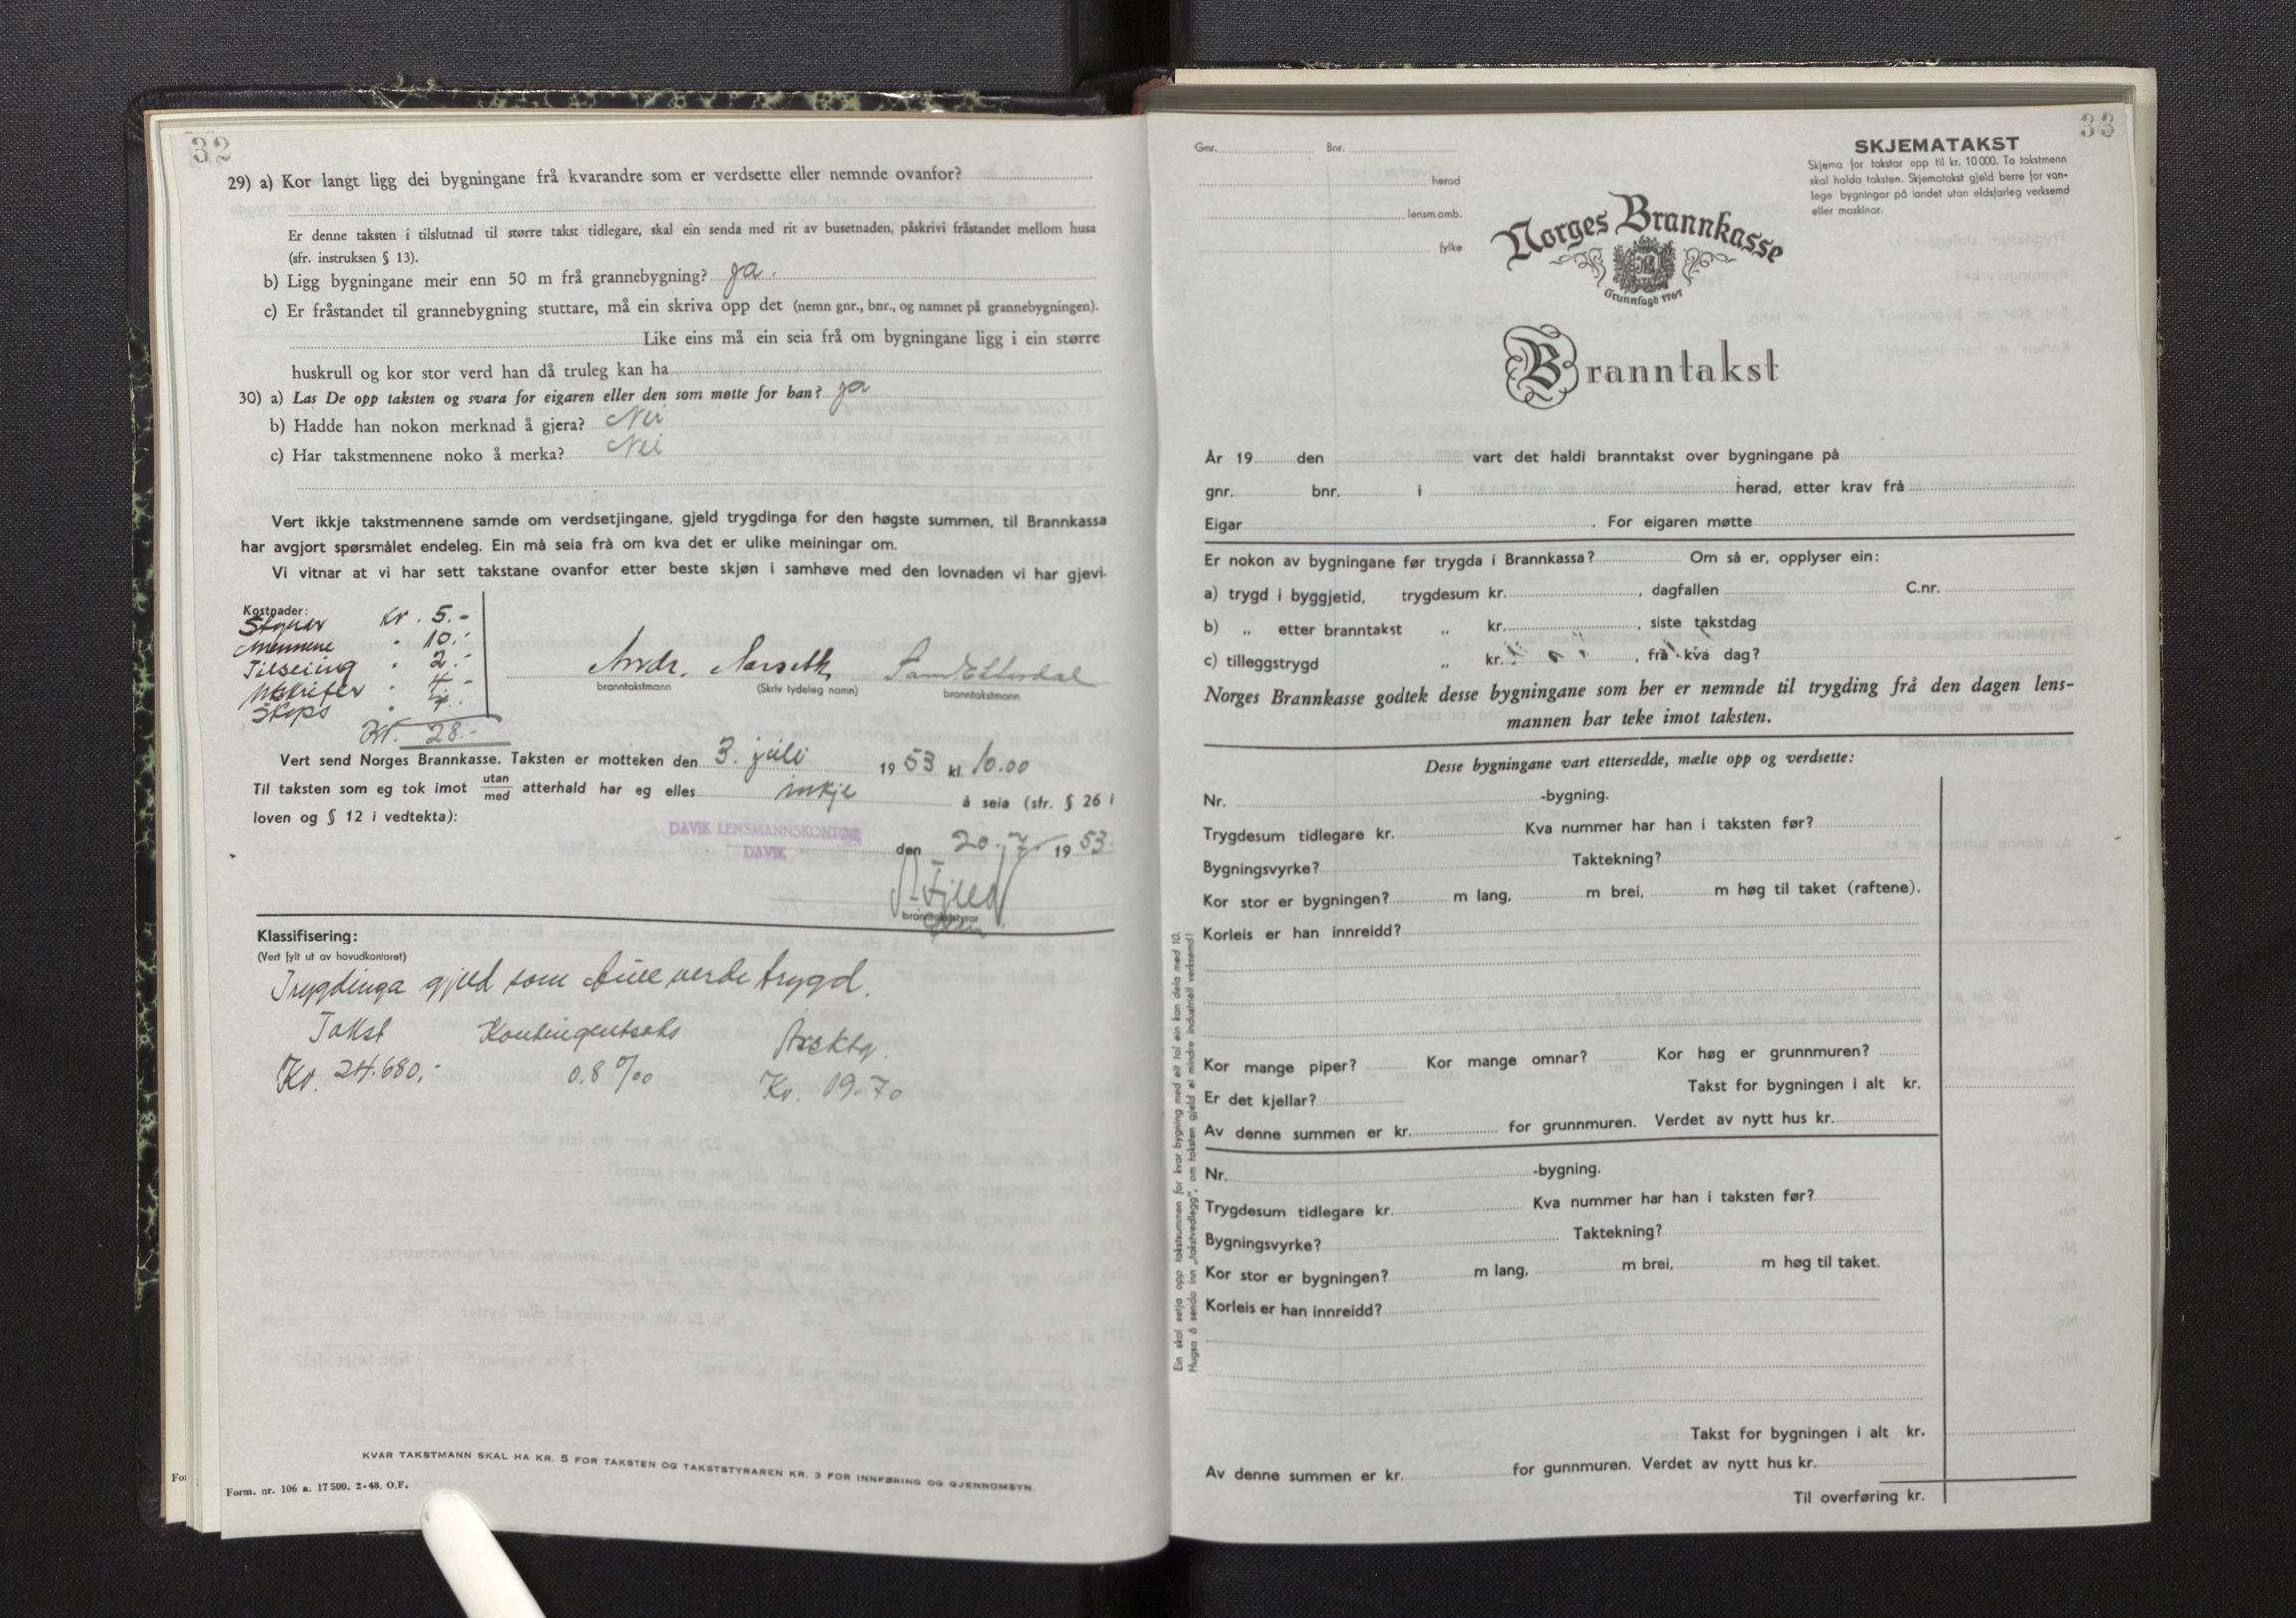 32
29) a) Kor langt ligg dei bygningane frå kvarandre som er verdsette eller nemnde ovanfor?
Er denne taksten i tilslutnad til større takst tidlegare, skal ein senda med rit av busetnaden, påskrivi fråstandet mellom husa
(sfr. instruksen § 13).
b) Ligg bygningane meir enn 50 m frå grannebygning? ja.
c) Er fråstandet til grannebygning stuttare, må ein skriva opp det (nemn gnr., bnr., og namnet på grannebygningen).
Like eins må ein seia frå om bygningane ligg i ein større
huskrull og kor stor verd han då truleg kan ha
30) a) Las De opp taksten og svara for eigaren eller den som møtte for han? ja
b) Hadde han nokon merknad å gjera? Nei
c) Har takstmennene noko å merka? Nei
Vert ikkje takstmennene samde om verdsetjingane, gjeld trygdinga for den høgste summen, til Brannkassa
har avgjort spørsmålet endeleg. Ein må seia frå om kva det er ulike meiningar om.
Vi vitnar at vi har sett takstane ovanfor etter beste skjøn i samhøve med den lovnaden vi har gjevi-
Kostnader:
Styrer kr. 5.-
Mennene " 10.-
Tilseiing " 2.-
Utskrifter " 4.-
Skyss
Kr. 28.-
Andr. Narseth
branntakstmann (Skriv tydeleg namn) branntakstmann
Vert send Norges Brannkasse. Taksten er motteken den 3. juli 1953 kl. 10.00
Til taksten som eg tok imot utan/med atterhald har eg elles inkje å seia (sfr. § 26 i
loven og § 12 i vedtekta):
DAVIK LENSMANNSKONTOR
DAVIK
den 20. 7. 1953.
branntakststyrar
Klassifisering:
(Vert fylt ut av hovudkontoret)
Trygdinga gjeld som full verde trygd.
Takst Kontingentsats Årsktg.
Kr. 24.680,- 0.8 ‰ Kr. 19.70
KVAR TAKSTMANN SKAL HA KR. 5 FOR TAKSTEN OG TAKSTSTYRAREN KR. 3 FOR INNFØRING OG GJENNOMSYN.
Form. nr. 106 a. 17 500. 2-48. O.F.
33
Gnr. Bnr.
herad
lensm.omb.
fylke
SKJEMATAKST
Skjema for takstar opp til kr. 10 000. To takstmenn
skal halda taksten. Skjematakst gjeld berre for van-
lege bygningar på landet utan eldsfarleg verksemd
eller maskinar.
Norges Brannkasse
Grunnlagd 1767
Branntakst
År 19 den vart det haldi branntakst over bygningane på
gnr. bnr. i herad, etter krav frå
Eigar. For eigaren møtte
Er nokon av bygningane før trygda i Brannkassa? Om så er, opplyser ein:
a) trygd i byggjetid, trygdesum kr. , dagfallen C.nr.
b) „ etter branntakst „ kr. , siste takstdag
c) tilleggstrygd „ kr. , frå kva dag?
Norges Brannkasse godtek desse bygningane som her er nemnde til trygding frå den dagen lens-
mannen har teke imot taksten.
Desse bygningane vart ettersedde, mælte opp og verdsette:
Nr. -bygning.
Trygdesum tidlegare kr. Kva nummer har han i taksten før?
Bygningsvyrke? Taktekning?
Kor stor er bygningen? m lang, m brei, m høg til taket (raftene).
Korleis er han innreidd?
Kor mange piper? Kor mange omnar? Kor høg er grunnmuren?
Er det kjellar? Takst for bygningen i alt kr.
Av denne summen er kr. for grunnmuren. Verdet av nytt hus kr.
Nr. -bygning.
Trygdesum tidlegare kr. Kva nummer har han i taksten før?
Bygningsvyrke? Taktekning?
Kor stor er bygningen? m lang, m brei, m høg til taket.
Korleis er han innreidd?
Takst for bygningen i alt kr.
Av denne summen er kr. for gunnmuren. Verdet av nytt hus kr.
Til overføring kr.
Ein skal setja opp takstsummen for kvar bygning med eit tal ein kan dela med 10.
Hugsa å senda inn „takstvedlegg", om taksten gjeld ei mindre industriell verksemd!